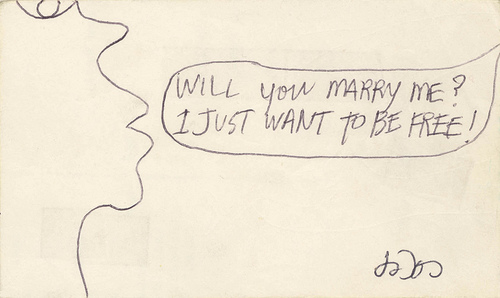 WILL YOU MARRY ME?
I JUST WANT TO BE FREE!